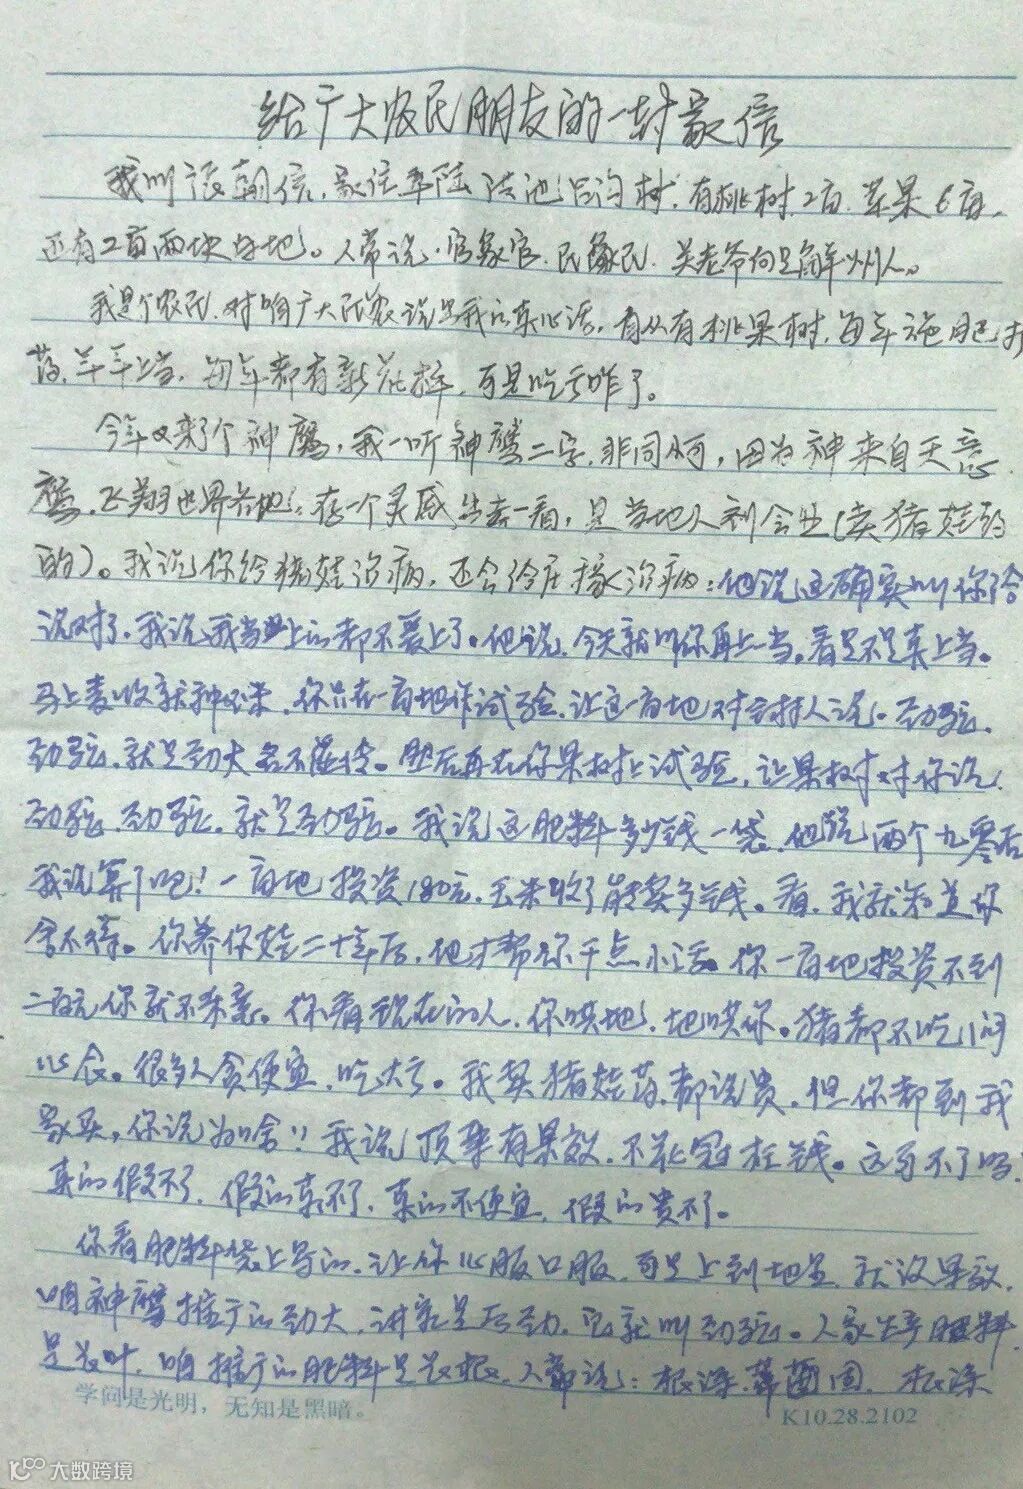 给广大农民朋友的一封家信
我叫张朝信,家住平陆洪池吕沟村,有桃树2亩,苹果6亩,
还有2亩两块白地。人常说,官象官,民象民,关老爷向是解州人。
我是个农民,对咱广大民农说出我的真心话,自从有桃果树,每年施肥打
药,年年上当,每年都有新花样,可是吃亏咋了。
今年又来了个神鹰,我一听神鹰二字,非同小可,因为神来自天意,
鹰,飞翔世界各地,在一个灵感出去一看,是当地人刘会生(卖猪娃药
的)。我说你给猪娃治病,还会给庄稼治病;他说这确实叫你给
说对了,我说我当上的都不爱上了。他说,今天就叫你再上一当。看是不是真上当。
马上麦收就种玉米,你只在一亩地作试验,让这一亩地对全村人说。劲驼,
劲驼,就是劲大名不虚传。然后再在你果树上试验,让果树对你说,
劲驼,劲驼,就是劲驼。我说这肥料多少钱一袋,他说两个九零后
我说算了吧!一亩地投资180元,玉米收了能卖多钱。看,我就知道你
舍不得。你养你娃二十年后,他才帮你干点小活。你一亩地投资不到
二百元你就不乐意。你看现在的人,你哄地,地哄你。猪都不吃
很多人贪便宜,吃大亏。我卖猪娃药,都说贵,但你都到我
家买,你说为啥!!我说顶事有果效,不能冤枉钱。这可不了吗,
真的假不了,假的真不了,真的不便宜,假的贵不了。
你看肥料袋上写的,让你心服口服,可是上到地里,就没果效,
咱神鹰推广的劲大,讲究是后劲,它就叫劲驼。人家生产肥料
是长叶,咱推广的肥料是长根,人常说:根深蒂固,根深
学问是光明,无知是黑暗。
K10.28.2102
大数跨境